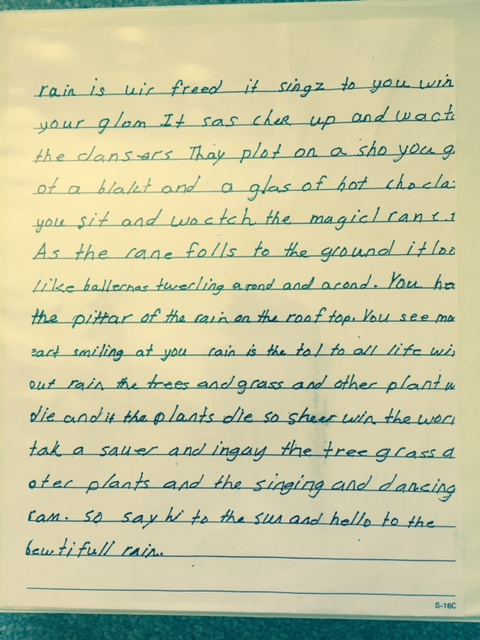 rain is uir freed it singz to you win
your glom It sas cher up and wact
the dansers Thay plot on a sho you g
ot a blakt and a glas of hot chocla
you sit and woctch the magicl rane
As the rane folls to the ground it loo
like ballernas twerling arond and arond. You he
the pittar of the rain on the roof top. You see mo
eart smiling at you rain is the tol to all life wi
out rain the trees and grass and other plant w
die and it the plants die so sheer win the worl
tak a sauer and ingay the tree grass a
oter plants and the singing and dancing
ran. so say hi to the sun and hello to the
bewtifull rain.
S-160